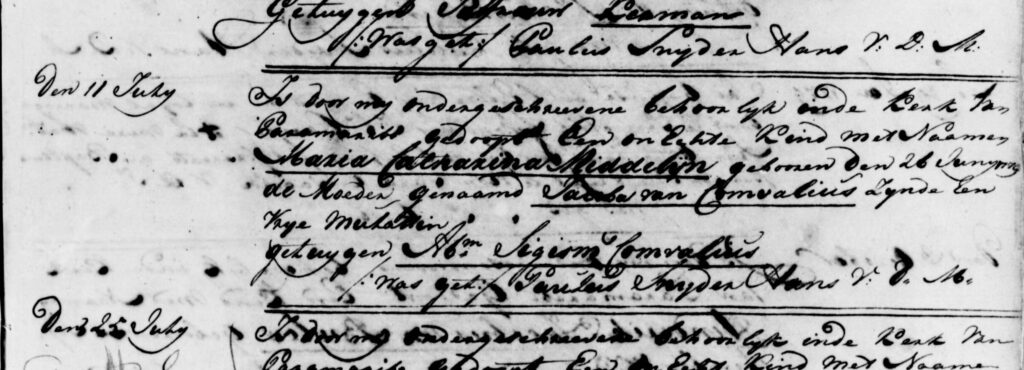 Getuygen Leaman
/: was get :/ Paulus Snyder Hans V: D: M:
Den 11 July
Is door my ondergeschrevene behoorlyk inde Kerk Van
Paramaribo gedoopt Een on Echte Kind met Naamen
Maria Catharina Middelijn gebooren den 26 Juny
de Moeder genaamd Jacoba van Comvalius Zynde Een
Vrye Mulattin
getuygen, Abm Comvalius
/: was get :/ Paulus Snyder Hans V: D. M.
Den 25 July
Is door my ondergeschrevene behoorlyk inde Kerk Van
Paramaribo gedoopt Een on Echt Kind met Naame